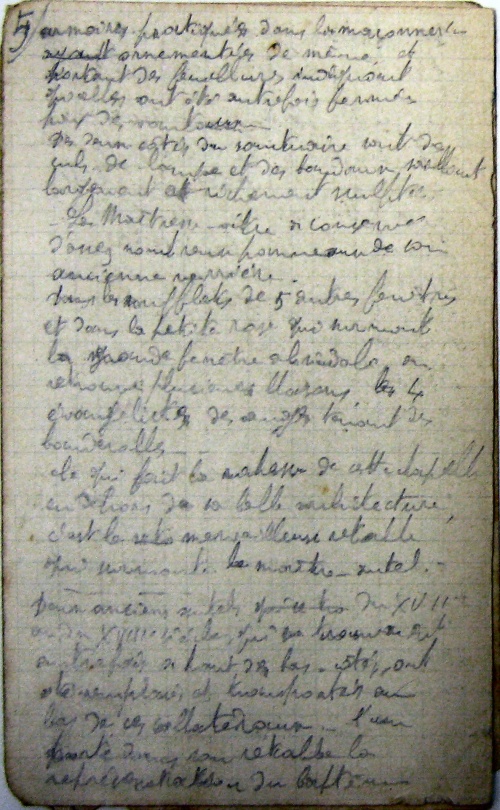 5) armoires pratiquées dans la maçonnerie
ayant ornementées de même, et
portant des feuillures indiquant
qu'elles ont été autrefois fermées
par des
Les deux côtés du sanctuaire ont des
culs de lampe et des
largement et richement sculptés.
La Maîtresse-vitre a conservé
d'assez nombreux panneaux de son
ancienne verrière.
Dans les soufflets de 5 autres fenêtres
et dans la petite rose qui surmonte
la grande fenêtre absidale, on
retrouve plusieurs blasons, les 4
évangélistes, des anges tenant des
banderolles.
Ce qui fait la richesse de cette chapelle
en dehors de sa belle architecture,
c'est le merveilleux retable
qui surmonte le maître-autel.
Deux anciens autels du XVIIe
ou du XVIIIe siècle, qui se trouvaient
autrefois au haut des bas-côtés, ont
été remplacés et transportés au
bas de ces collatéraux. L'un
porte dans son retable la
représentation du baptême